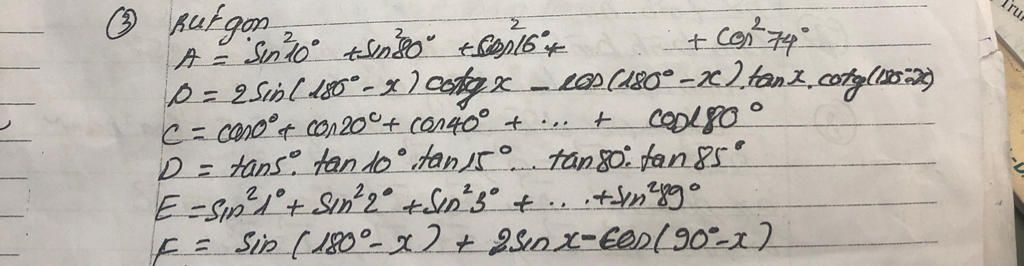 ③ Rút gọn
A = sin²10° + sin²80° + cos²16° + + cos²74°
D = 2sin(180° - x) cotg x - cos(180° - x). tanx. cotg(180° - x)
C = cos0° + cos20° + cos40° + ... + cos180°
D = tan5°. tan10°. tan15°... tan80°. tan85°
E = sin²1° + sin²2° + sin²3° + ... + sin²89°
F = sin(180° - x) + 2sinx - cos(90° - x)